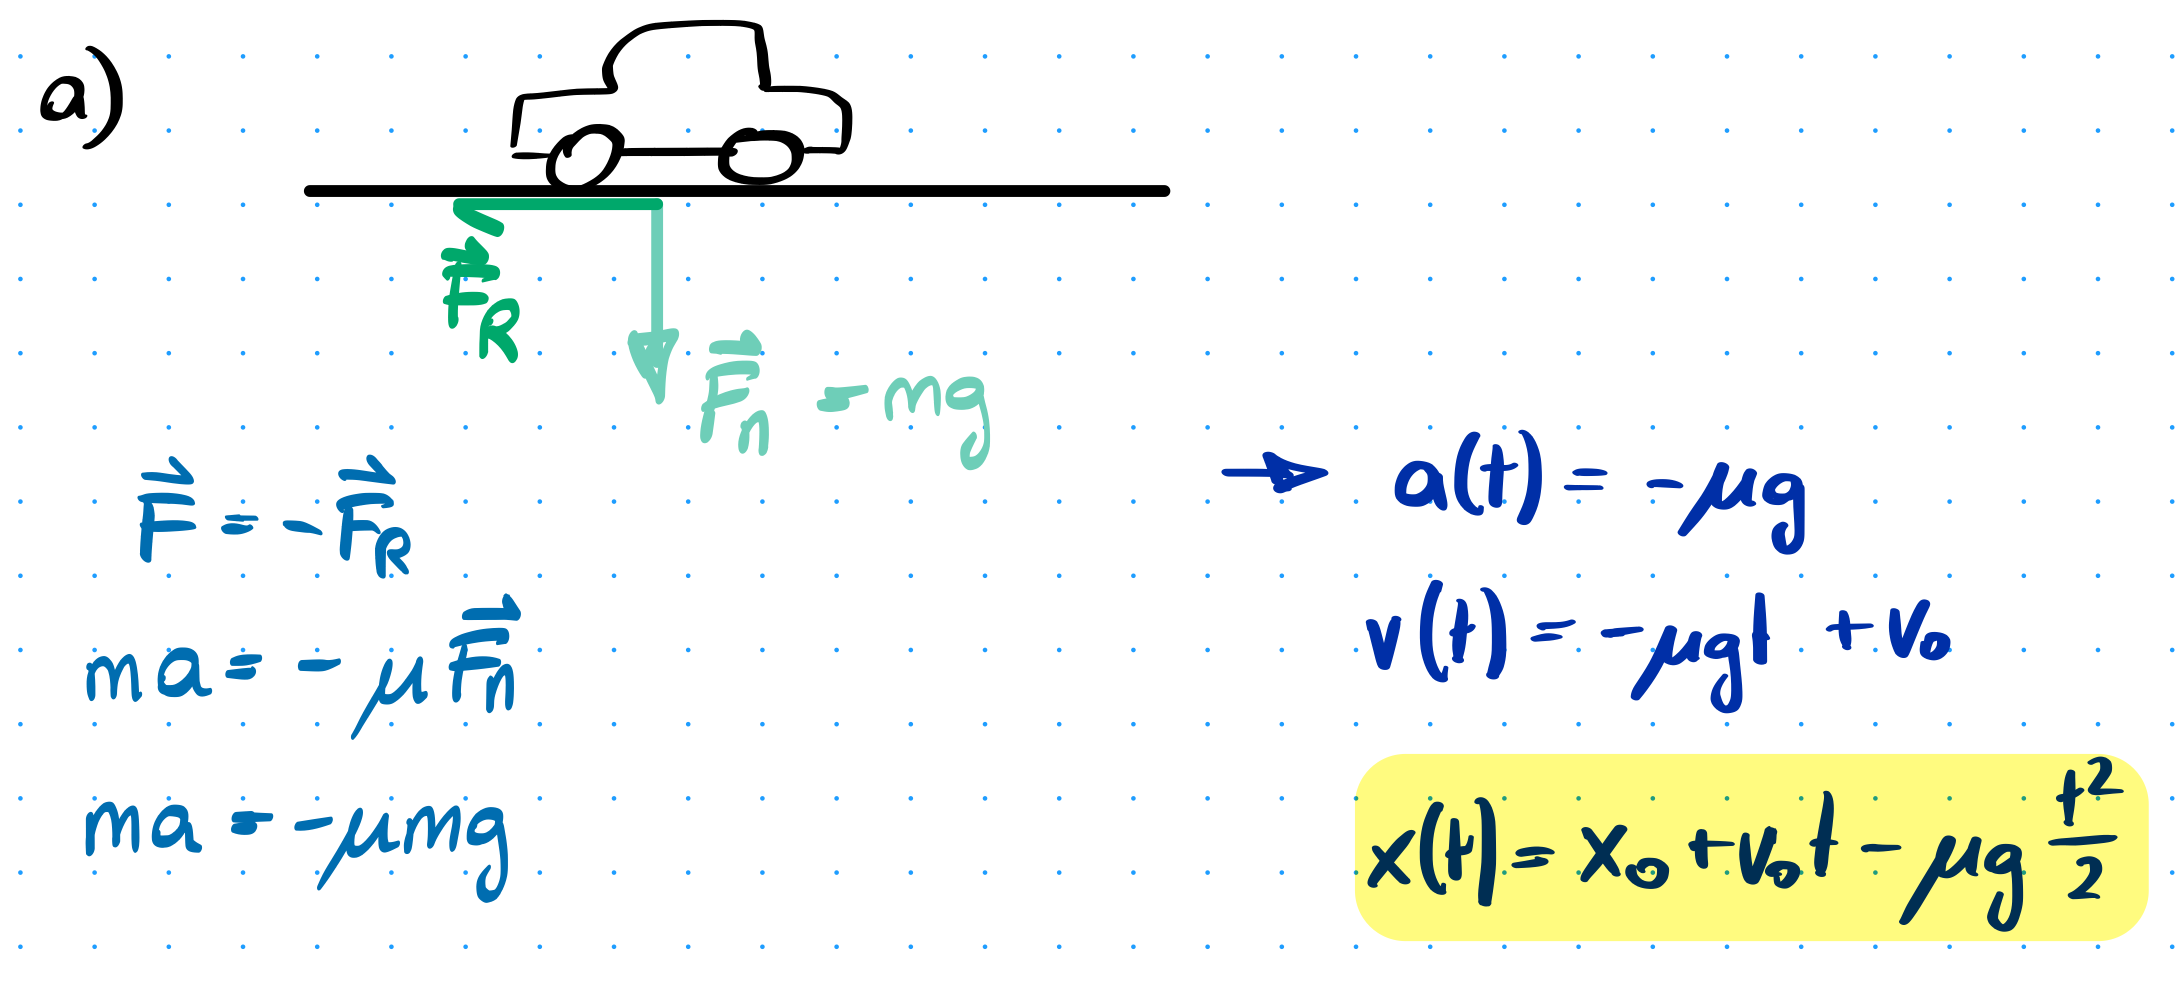 a)
F⃗_R
F⃗_n = mg
F⃗ = -F⃗_R
ma = -μF⃗_n
ma = -μmg
→ a(t) = -μg
v(t) = -μgt + v₀
x(t) = x₀ + v₀t - μg t²/2